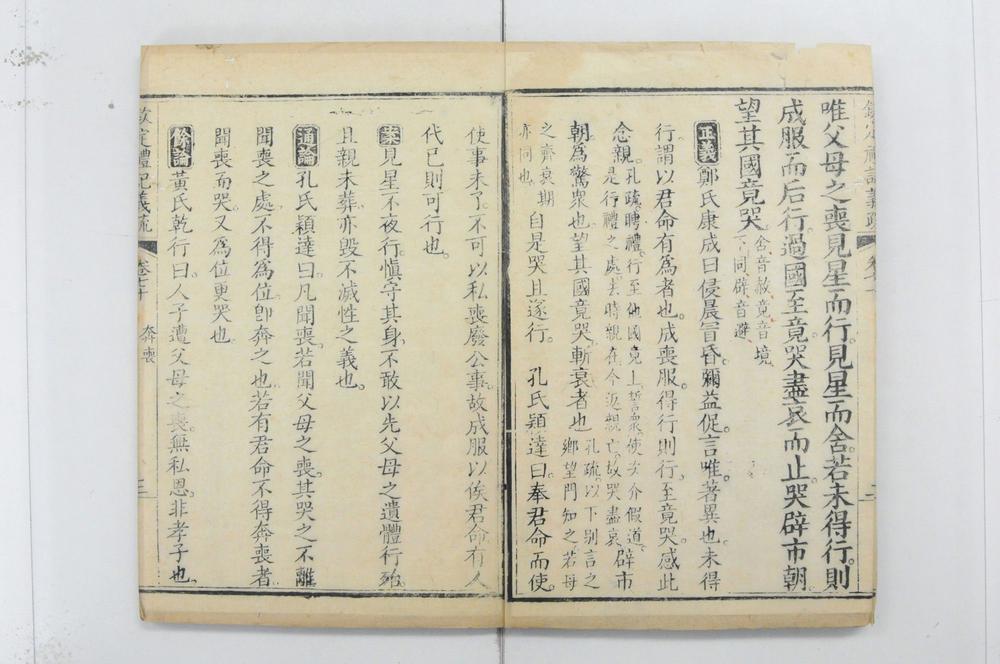 唯父母之喪見星而行見星而舍若未得行則
成服而后行過國至竟哭盡哀而止哭辟市朝
望其國竟哭
舍音赦竟音境
下同辟音避
正義 鄭氏康成曰侵晨冒昏彌益促言唯著異也未得
行謂以君命有為者也成喪服得行則行至竟哭感此
念親
孔疏聘禮行至他國竟上誓衆使次介假道
是行禮之處去時親在今返親亡故哭盡哀
辟市
朝為驚衆也望其國竟哭斬衰者也
孔疏以下別言之
鄉望門知之若母
之齊衰期
亦同也
自是哭且遂行 孔氏穎達曰奉君命而使
使事未了不可以私喪廢公事故成服以俟君命有人
代已則可行也
案 見星不夜行慎守其身不敢以先父母之遺體行殆
且親未葬亦毀不滅性之義也
通論 孔氏穎達曰凡聞喪若聞父母之喪其哭之不離
聞喪之處不得為位卽奔之也若有君命不得奔喪者
聞喪而哭又為位更哭也
餘論 黃氏乾行曰人子遭父母之喪無私恩非孝子也
欽定禮記義疏 卷七十 奔喪 三